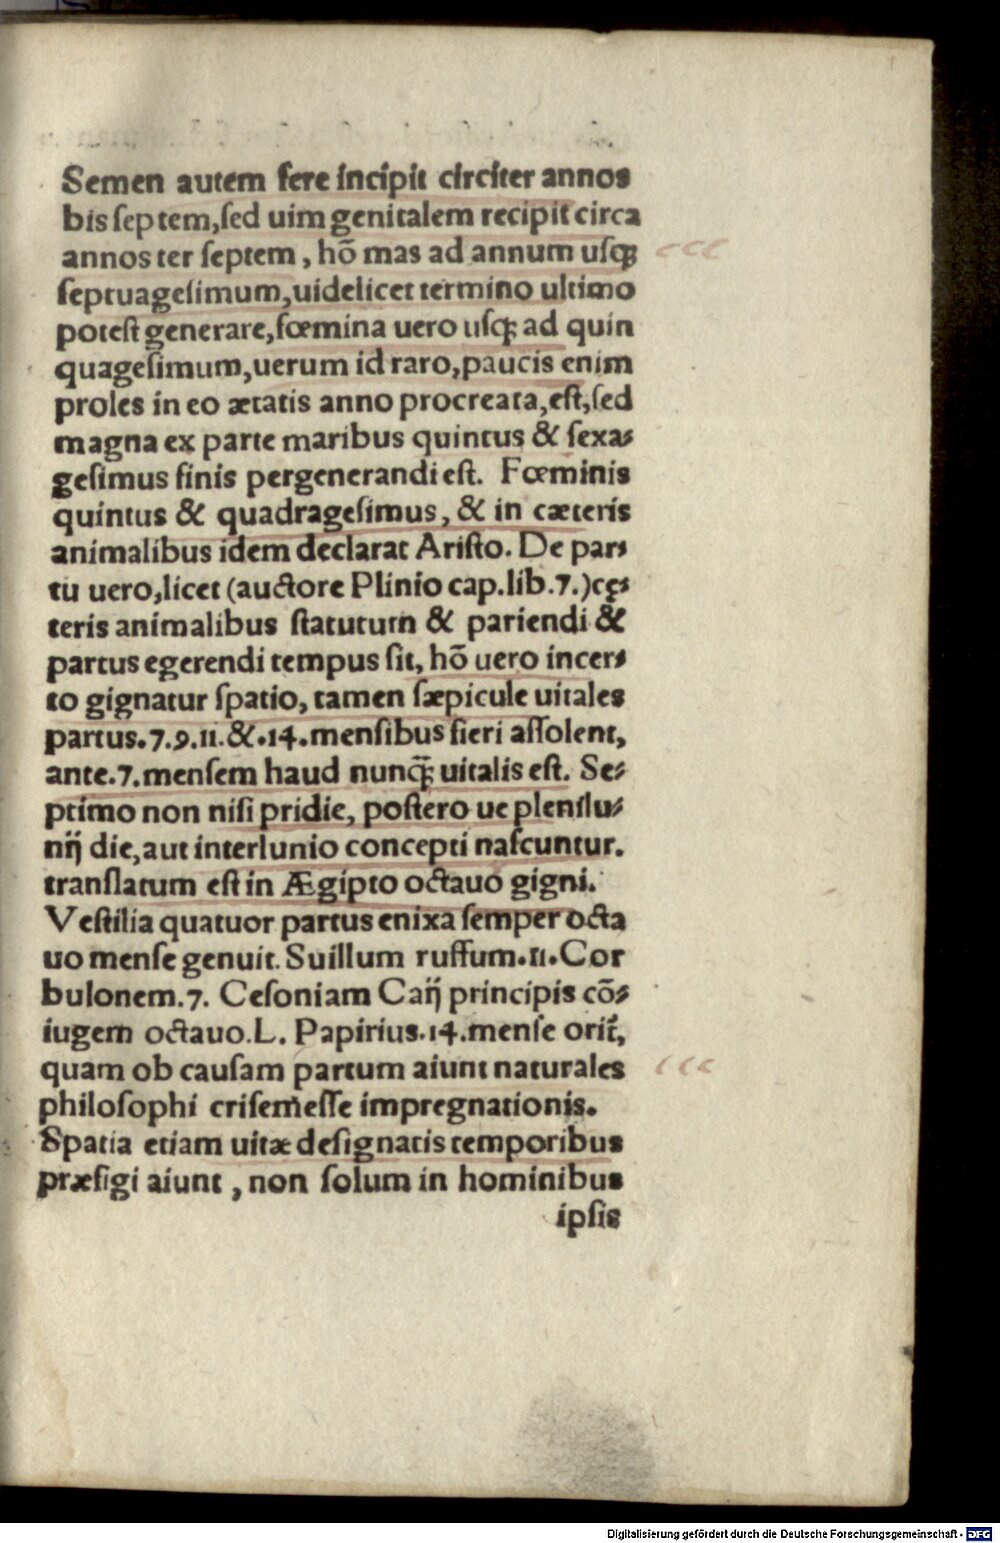 Semen autem fere incipit circiter annos
bis ſeptem,ſed uim genitalem recipit circa
annos ter ſeptem, hõ mas ad annum uſqꝫ
ſeptuageſimum,uidelicet termino ultimo
poteſt generare,fœmina uero uſqꝫ ad quin
quageſimum,uerum id raro,paucis enim
proles in eo ætatis anno procreata,eſt,ſed
magna ex parte maribus quintus & ſexa⸗
geſimus finis pergenerandi eſt. Fœminis
quintus & quadrageſimus, & in cæteris
animalibus idem declarat Ariſto. De par⸗
tu uero,licet (auctore Plinio cap.lib.7.)cę⸗
teris animalibus ſtatutum & pariendi &
partus egerendi tempus ſit, hõ uero incer⸗
to gignatur ſpatio, tamen ſæpicule uitales
partus.7.9.11.&.14.menſibus fieri aſſolent,
ante.7.menſem haud nunqꝫ̃ uitalis eſt. Se⸗
ptimo non niſi pridie, poſtero ue plenilu⸗
nij die,aut interlunio concepti naſcuntur.
tranſlatum eſt in Ægipto octauo gigni.
Veſtilia quatuor partus enixa ſemper octa
uo menſe genuit. Suillum ruffum.11.Cor
bulonem.7. Ceſoniam Caij principis cõ⸗
iugem octauo.L. Papirius.14.menſe orit᷑,
quam ob cauſam partum aiunt naturales
philoſophi criſem̃eſſe impregnationis.
Spatia etiam uitæ deſignatis temporibus
præfigi aiunt, non ſolum in hominibus
ipſis
Digitalisierung gefördert durch die Deutsche Forschungsgemeinschaft - DFG